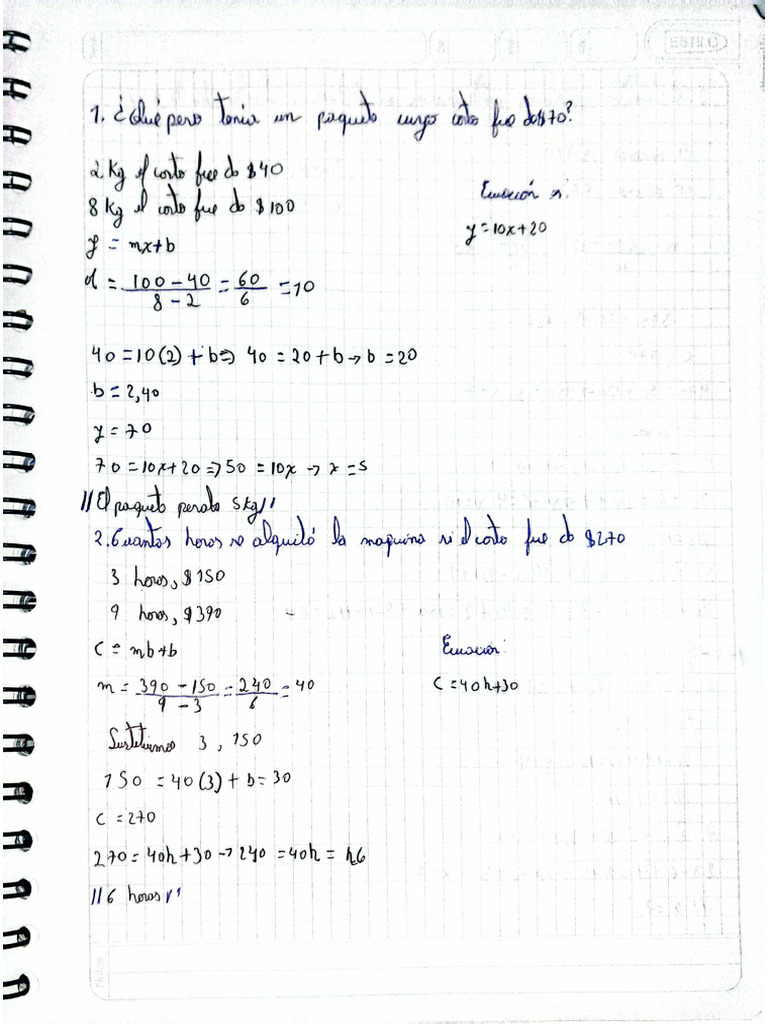 1. ¿Qué peso tenia un paquete cuyo costo fue de $70?
2 Kg el costo fue de $40
8 Kg el costo fue de $100
Ecuación
y = 10x+20
y = mx+b
d = 100 - 40 / 8 - 2 = 60 / 6 = 10
40 = 10(2) + b => 40 = 20 + b → b = 20
b = 2,40
y = 70
70 = 10x+20 => 50 = 10x → x = 5
// El paquete pesaba 5kg //
2. Cuantas horas se alquiló la maquina si el costo fue de $270
3 horas, $150
9 horas, $390
C = mb+b
Ecuación:
C = 40h+30
m = 390 - 150 / 9 - 3 = 240 / 6 = 40
3, 150
150 = 40(3) + b = 30
C = 270
270 = 40h + 30 → 240 = 40h = h6
// 6 horas //
Notas